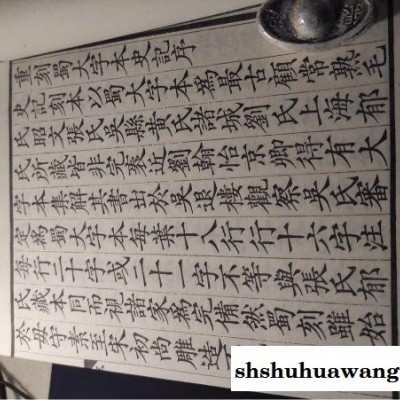 重刻蜀大字本史記序
史記刻本以蜀大字本為最古顧常熟毛
氏昭文張氏吳縣黃氏諸城劉氏上海郁
氏所藏皆非完袠近劉翰怡京卿得有大
字本集解其書出於吳退樓觀察吳氏審
定為蜀大字本每葉十八行行十六字注
每行二十字或二十一字不等與張氏郁
氏藏本同而視諸家為完備然蜀刻雖始
於毋守素至宋初尚雕造
shshuhuawang